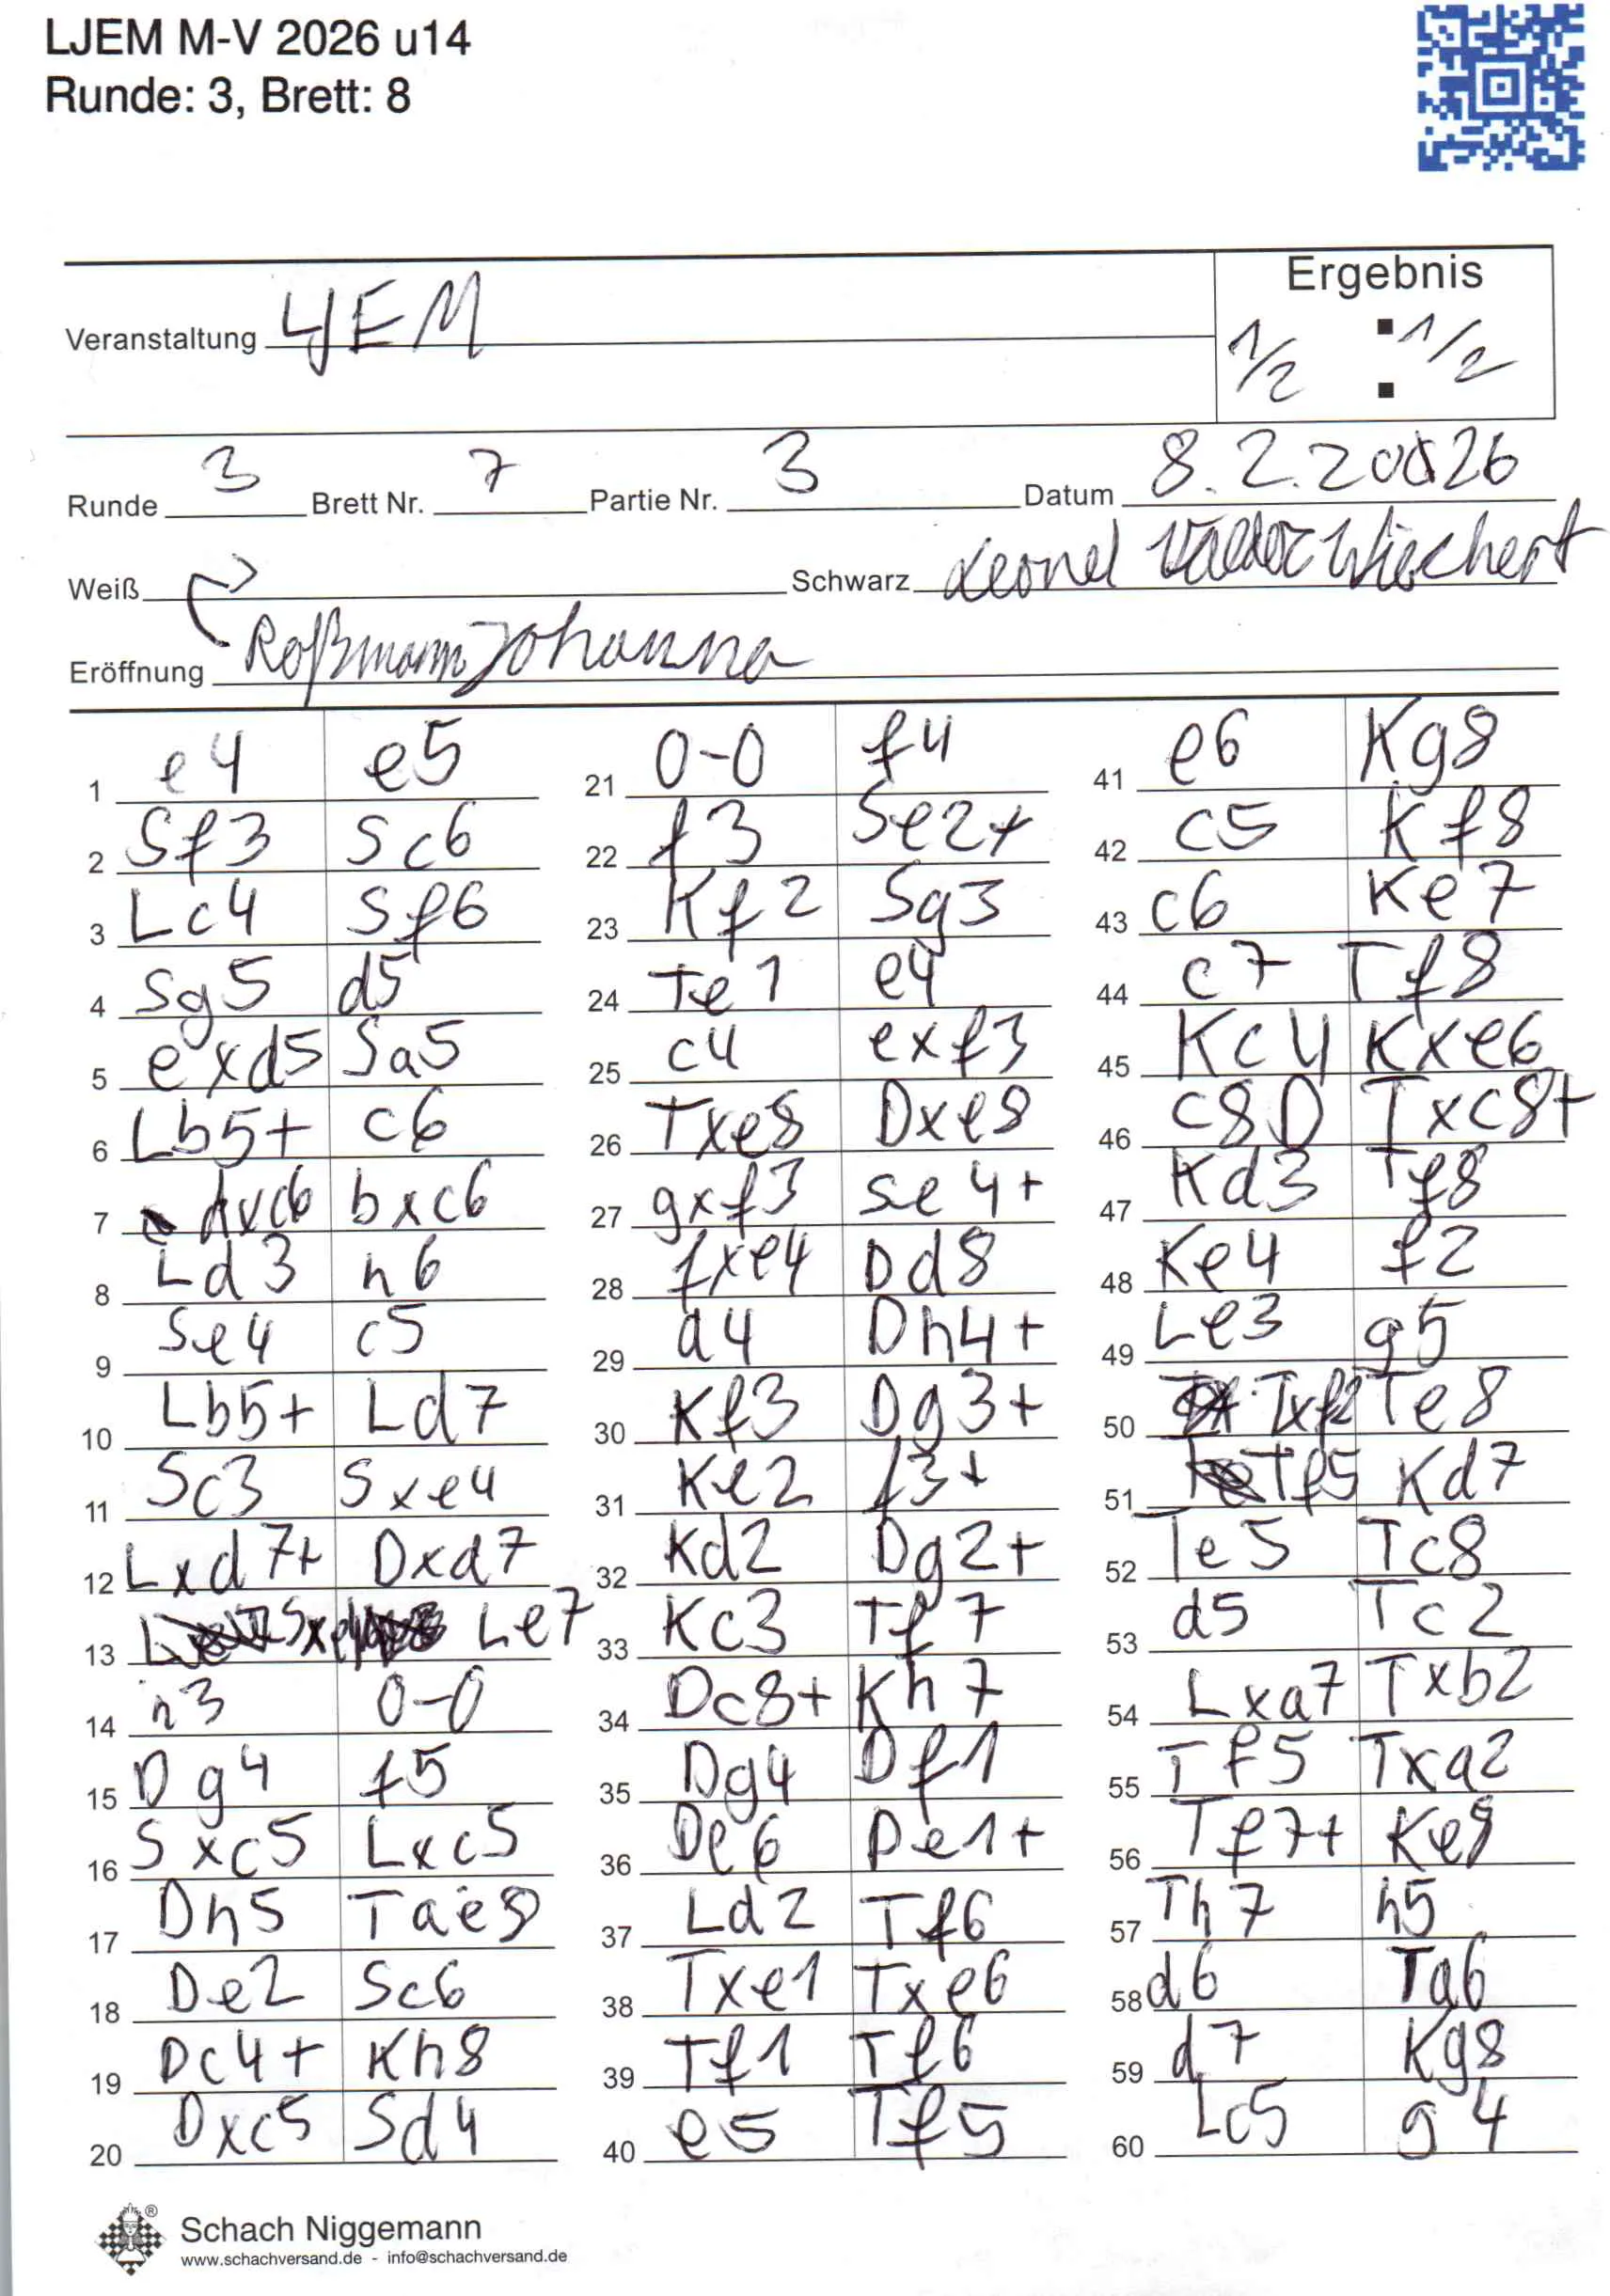 LJEM M-V 2026 u14
Runde: 3, Brett: 8
Ergebnis
Veranstaltung LJEM
1/2 : 1/2
Runde 3 Brett Nr. 7 Partie Nr. 3 Datum 8.2.2026
Weiß Schwarz Leonel Wiechert
Eröffnung Roßmann Johanna
1 e4 e5
2 Sf3 Sc6
3 Lc4 Sf6
4 Sg5 d5
5 exd5 Sa5
6 Lb5+ c6
7 dxc6 bxc6
8 Ld3 h6
9 Se4 c5
10 Lb5+ Ld7
11 Sc3 Sxe4
12 Lxd7+ Dxd7
13 Sxe4 Le7
14 h3 0-0
15 Dg4 f5
16 Sxc5 Lxc5
17 Dh5 Tae8
18 De2 Sc6
19 Dc4+ Kh8
20 Dxc5 Sd4
21 0-0 f4
22 f3 Se2+
23 Kf2 Sg3
24 Te1 e4
25 c4 exf3
26 Txe8 Dxe8
27 gxf3 Se4+
28 fxe4 Dd8
29 d4 Dh4+
30 Kf3 Dg3+
31 Ke2 f3+
32 Kd2 Dg2+
33 Kc3 Tf7
34 Dc8+ Kh7
35 Dg4 Df1
36 De6 De1+
37 Ld2 Tf6
38 Txe1 Txe6
39 Tf1 Tf6
40 e5 Tf5
41 e6 Kg8
42 c5 Kf8
43 c6 Ke7
44 c7 Tf8
45 Kc4 Kxe6
46 c8D Txc8+
47 Kd3 Tf8
48 Ke4 f2
49 Le3 g5
50 Txf2 Te8
51 Tf5 Kd7
52 Te5 Tc8
53 d5 Tc2
54 Lxa7 Txb2
55 Tf5 Txa2
56 Tf7+ Ke8
57 Th7 h5
58 d6 Ta6
59 d7 Kg8
60 Lc5 g4
Schach Niggemann
www.schachversand.de - info@schachversand.de